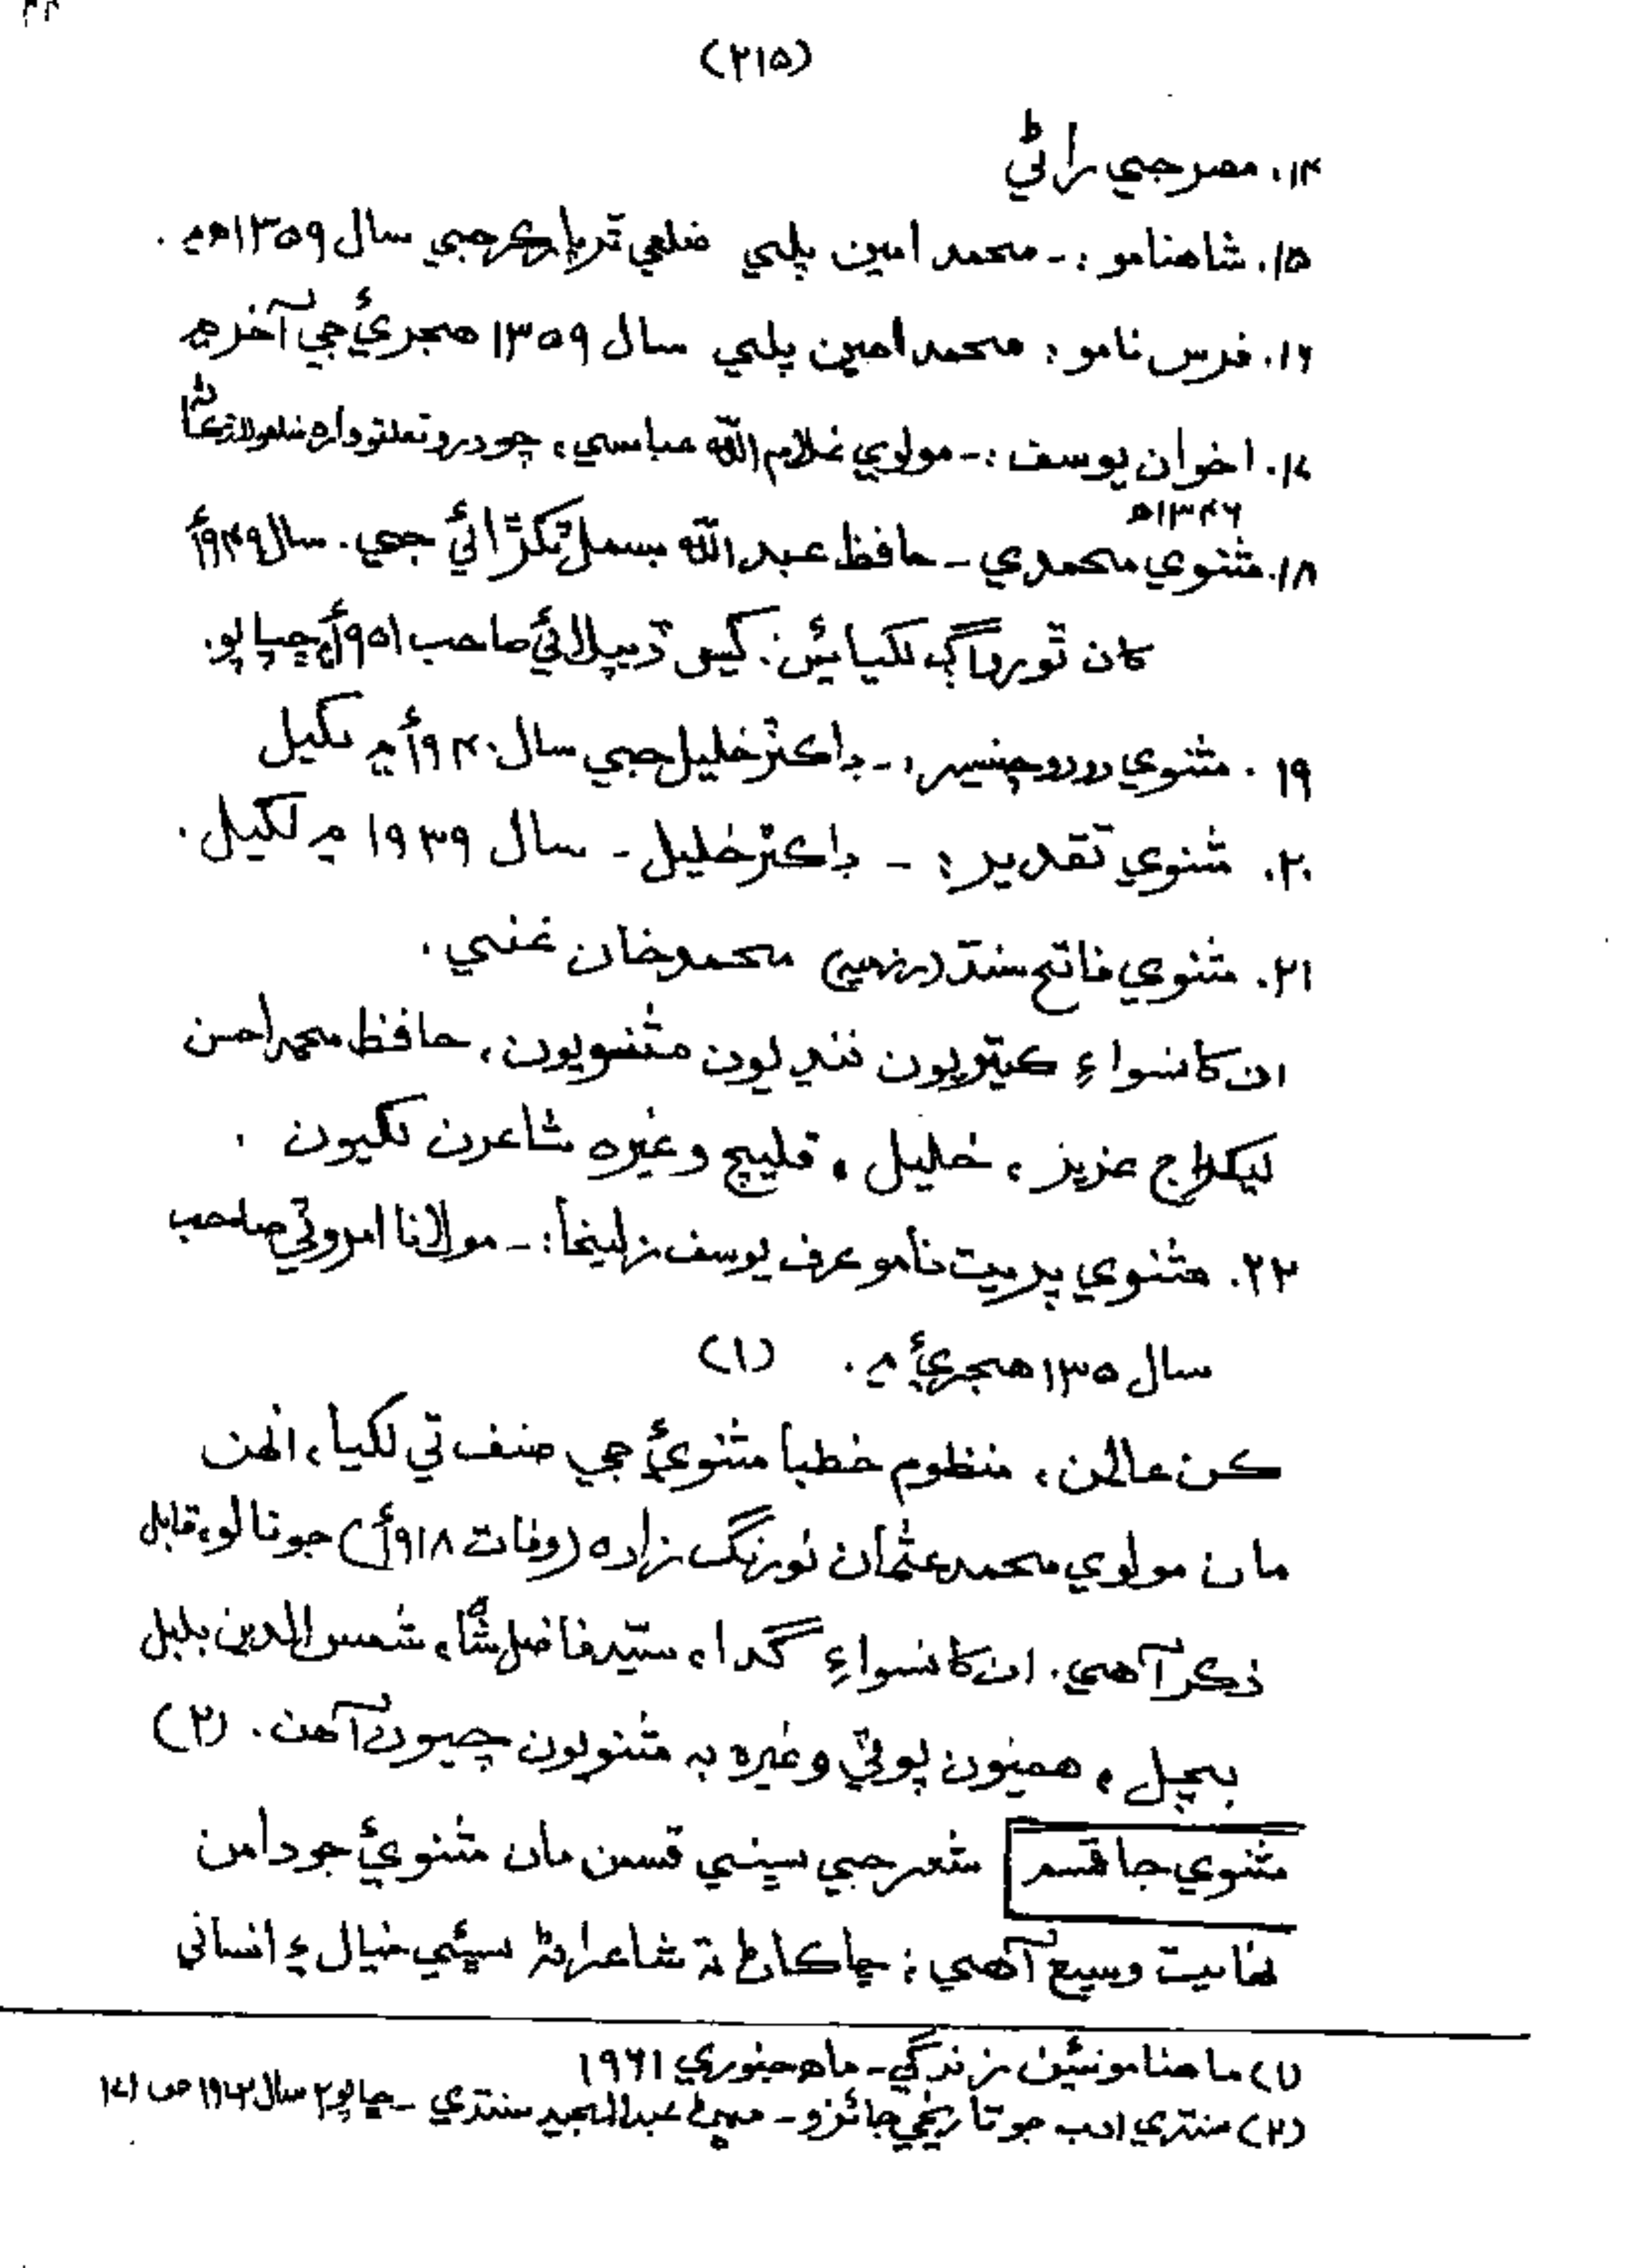 (۲۱۵)
۱۴. مصر جي راڻي
۱۵. شاهنامو :- محمد امين پلي ضلعي ٿرپارڪر جي سال ۱۳۵۹ھ ۾.
۱۶. فرس نامو : محمد امين پلي سال ۱۳۵۹ هجريءَ جي آخر ۾
۱۷. اخوان يوسف :- مولوي غلام الله عباسي، چودرو تعلقو وارھ ضلعو لاڙڪاڻہ
۱۳۴۶ھ
۱۸. مثنوي محمدي - حافظ عبدالله بسمل ٽکڙائي جي. سال ۱۹۴۹ع
کان ٿورو اڳ لکيائين: گيس ڏيپلائي صاحب ۱۹۵۱ع ۾ ڇپايو.
۱۹. مثنوي دودو چنيسر :- ڊاڪٽر خليل جي سال ۱۹۴۰ع ۾ لکيل
۲۰. مثنوي تقدير :- ڊاڪٽر خليل - سال ۱۹۳۹ ۾ لکيل.
۲۱. مثنوي فاتح سنڌ (رزميہ) محمد خان غني.
ان کانسواءِ ڪيتريون ننڍيون مثنويون، حافظ محمد احسن
ليکراج عزيز، خليل، قليچ وغيره شاعرن لکيون.
۲۲. مثنوي پريت نامو عرف يوسف زليخا :- مولانا امروٽي صاحب
سال ۱۳۵ هجريءَ ۾. (۱)
ڪن عالمن، منظوم خطبا مثنويءَ جي صنف تي لکيا، انهن
مان مولوي محمد عثمان نورنگ زاده (وفات ۱۹۱۸ع) جو نالو، قابل
ذڪر آهي. ان کانسواءِ گدا، سيّد فاضل شاھ، شمس الدين بلبل
بيچل، همٿون پوٽي وغيره بہ مثنويون چيون آهن. (۲)
مثنوي جا قسم شعر جي سڀني قسمن مان مثنويءَ جو دامن
نهايت وسيع آهي؛ ڇاڪاڻ تہ شاعراڻہ سڀئي خيال ۽ انساني
(۱) ماهنامو نئين زندگي - ماھ جنوري ۱۹۶۱
(۲) سنڌي ادب جو تاريخي جائزو - ميمڻ عبدالمجيد سنڌي - ڇاپو ۲ سال ۱۹۷۳ ص ۱۷۱